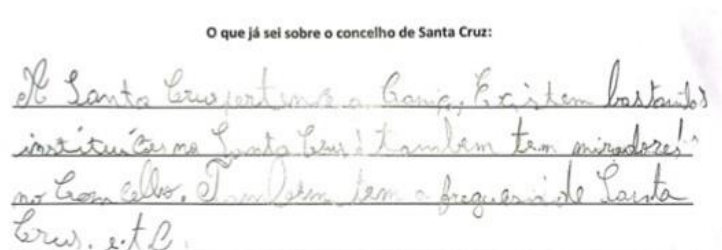 O que já sei sobre o concelho de Santa Cruz:
A Santa Cruz pertence a Caniç, Existem bastantes
instituições na Santa Cruz e também tem miradores
no Concelho. Também tem a freguesia de Santa
Cruz. e.t.c.